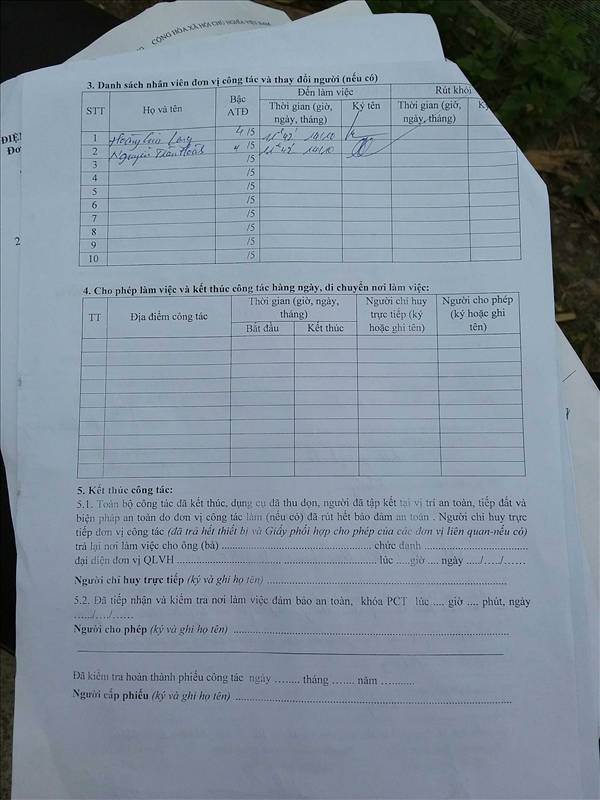 CỘNG HÒA XÃ HỘI CHỦ NGHĨA VIỆT NAM
3. Danh sách nhân viên đơn vị công tác và thay đổi người (nếu có)
STT Họ và tên Bậc ATĐ Đến làm việc Rút khỏi
Thời gian (giờ, ngày, tháng) Ký tên Thời gian (giờ, ngày, tháng)
1 Long 4 /5 14/10
2 Nguyễn 4 /5 14/10
3 /5
4 /5
5 /5
6 /5
7 /5
8 /5
9 /5
10 /5
4. Cho phép làm việc và kết thúc công tác hàng ngày, di chuyển nơi làm việc:
TT Địa điểm công tác Thời gian (giờ, ngày, tháng) Người chỉ huy trực tiếp (ký hoặc ghi tên) Người cho phép (ký hoặc ghi tên)
Bắt đầu Kết thúc
5. Kết thúc công tác:
5.1. Toàn bộ công tác đã kết thúc, dụng cụ đã thu dọn, người đã tập kết tại vị trí an toàn, tiếp đất và
biện pháp an toàn do đơn vị công tác làm (nếu có) đã rút hết bảo đảm an toàn . Người chỉ huy trực
tiếp đơn vị công tác (đã trả hết thiết bị và Giấy phối hợp cho phép của các đơn vị liên quan-nếu có)
trả lại nơi làm việc cho ông (bà) ........ chức danh ........
đại diện đơn vị QLVH ........ lúc .....giờ .... ngày ...../..../......
Người chỉ huy trực tiếp (ký và ghi họ tên) ........
5.2. Đã tiếp nhận và kiểm tra nơi làm việc đảm bảo an toàn, khóa PCT lúc .... giờ .... phút, ngày
....../..../......
Người cho phép (ký và ghi họ tên) ........
Đã kiểm tra hoàn thành phiếu công tác ngày ........ tháng ....... năm ..........
Người cấp phiếu (ký và ghi họ tên) ........